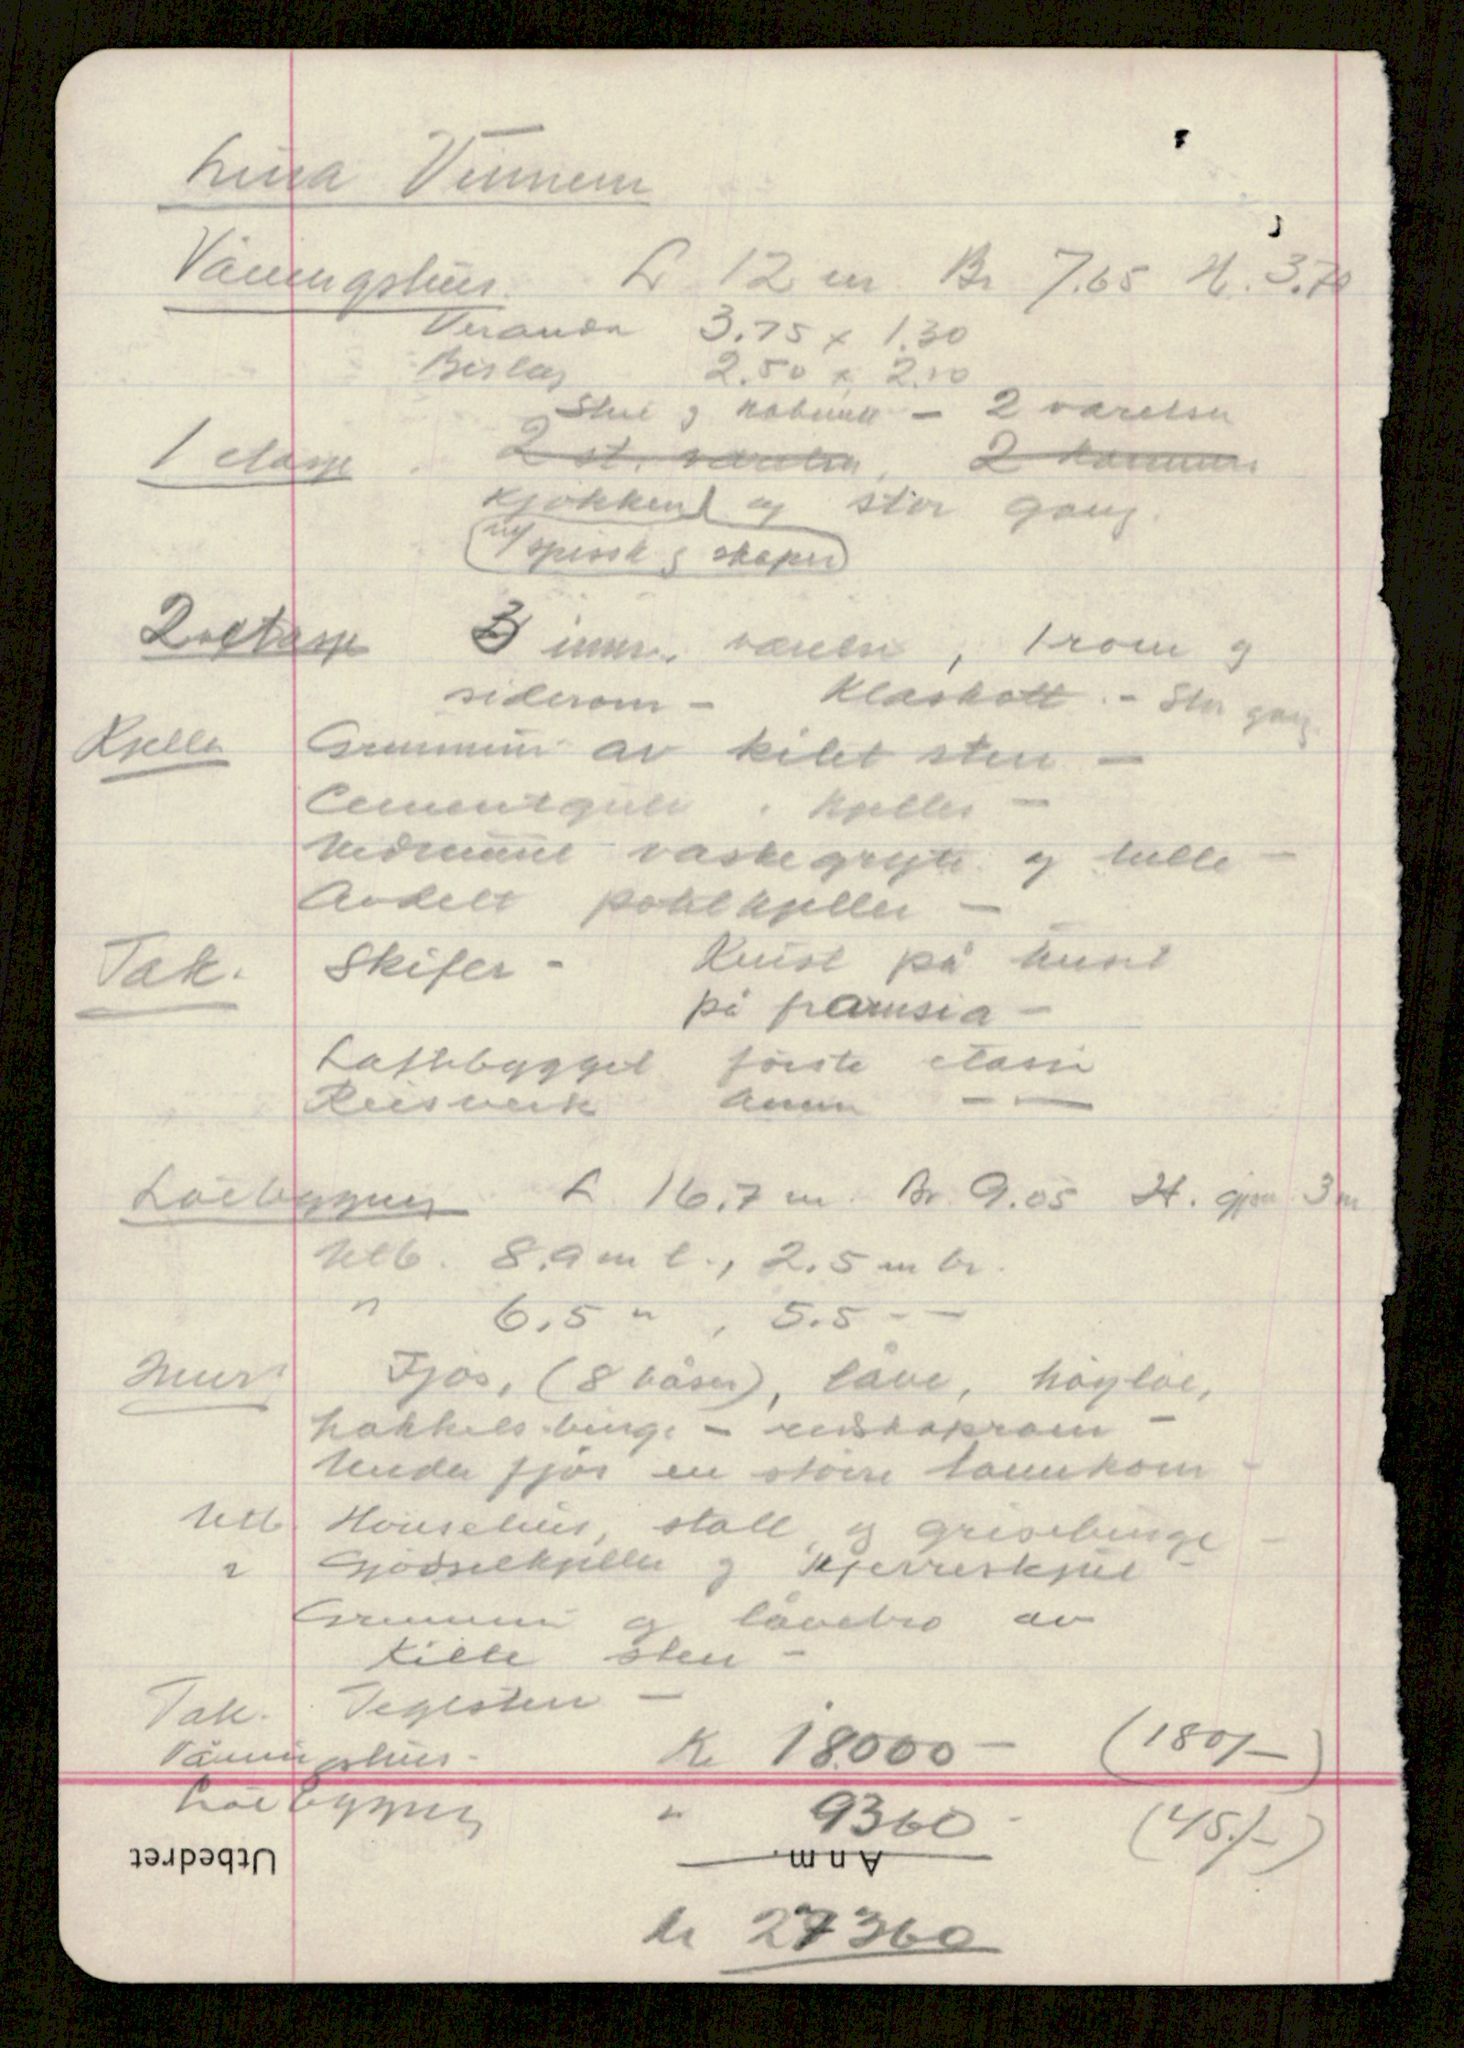 Lina Vinnem
Våningshus. L 12 m Br 7.65 H. 3.70
Veranda 3.75 x 1.30
Bislag 2.50 x 2.10
Stue og kabinett – 2 værelser
1 etasje. 2 st. værelser, 2 kammers
kjøkken og stor gang.
m/ spissk og skaper
2 etasje 3 innr. værelser, 1 rom og
siderom – Kleskott. – Stor gang
Kjeller Grunnmur av kilet sten –
Cementgulv i kjeller –
Nedmuret vaskegryte og helle –
Avdelt potetkjeller –
Tak. Skifer – Kvist på huset
på framsia –
Laftebygget første etasje
Reisverk annen — —
Løebygning L. 16.7 m. Br. 9.05 H. gjen. 3 m
Utb. 8.9 m l., 2.5 m br.
" 6.5 " , 5.5 – –
Innr: Fjøs, (8 båser), låve, høyløe,
hakkels-binge – redskaprom –
Under fjøs en større tomkom –
Utb. Hønsehus, stall, og grisebinge –
" Gjødselkjeller og kjerreskjul –
Grunnmur og låvebro av
kilte sten –
Tak. Teglsten –
Våningshus. Kr 18.000 – (180/–)
Løebygning " 9360 – (45./–)
Utbedret Anm.
kr 27360